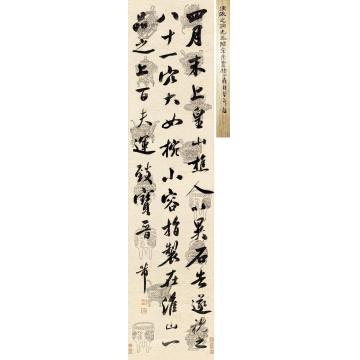 四月末上皇山樵人以異石告遂視之
八十一穴大如椀小容指製在淮山一
品之上百夫運致寶晉
芾